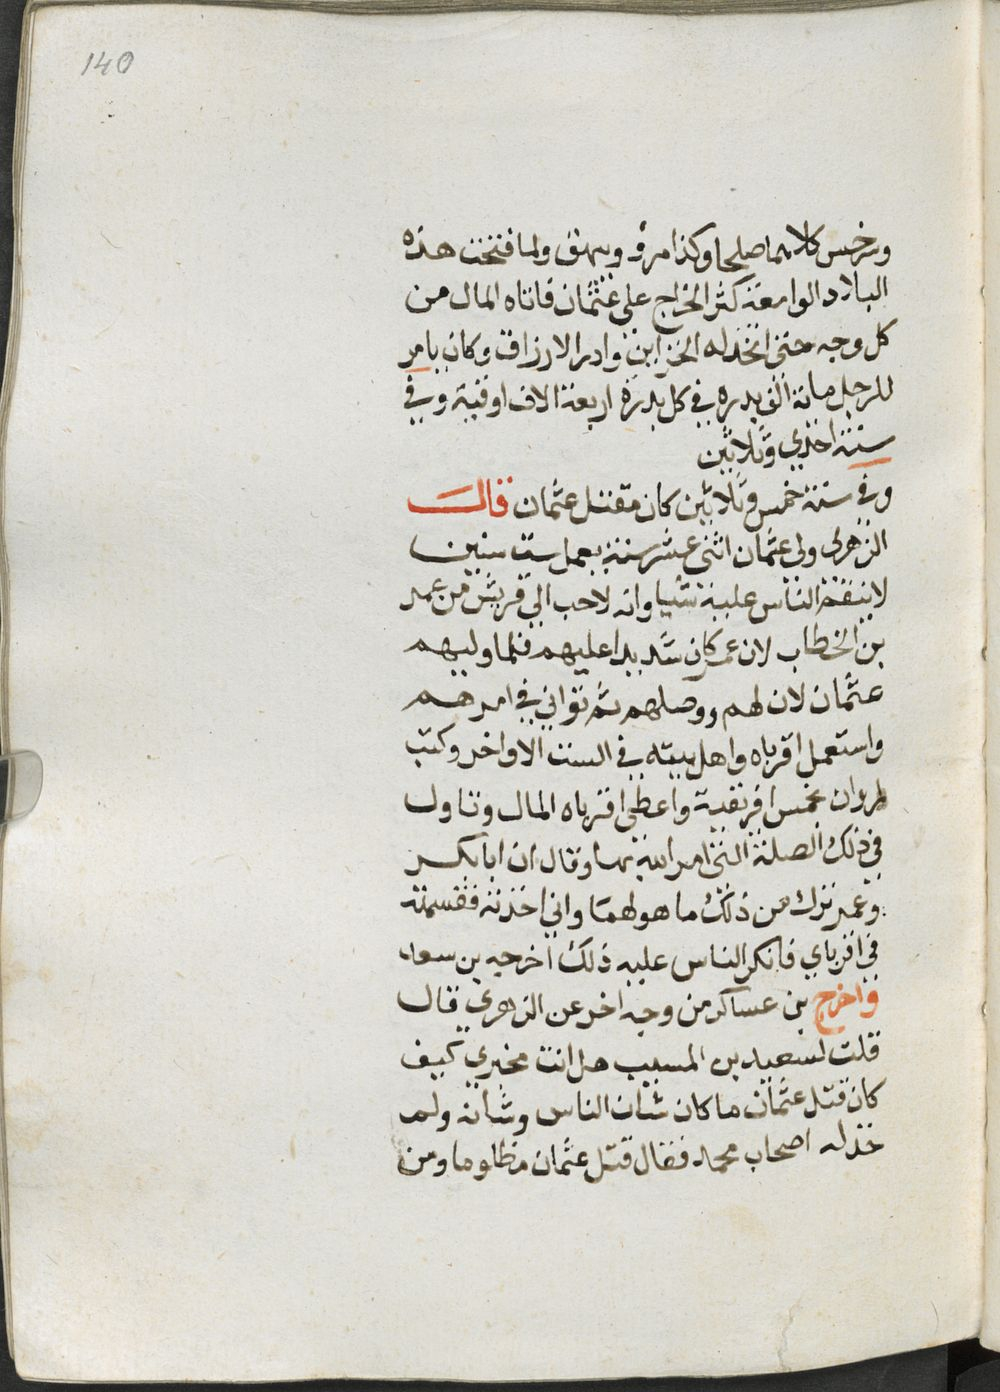 140
وسرخس كلاهما صلحا وكذا مرو وبيهق ولما فتحت هذه
البلاد الواسعة كثر الخراج على عثمان فاتاه المال من
كل وجه حتى اتخذ له الخزاين وادر الارزاق وكان يامر
للرجل مائة الف بدرة في كل بدرة اربعة الاف اوقية وفي
سنة احدي وثلاثين
وفي سنة خمس وثلاثين كان مقتل عثمان قال
الزهري ولى عثمان اثنى عشر سنة يعمل ست سنين
لا ينقم الناس عليه شيا وانه لاحب الي قريش من عمر
بن الخطاب لان عمر كان شديدا عليهم فلما وليهم
عثمان لان لهم ووصلهم ثم تواني في امرهم
واستعمل اقرباه واهل بيته في الست الاواخر وكتب
لمروان بخمس افريقية واعطى اقرباه المال وتاول
في ذلك الصلة التي امر الله بها وقال ان ابا بكر
وعمر ترك من ذلك ما هو لهما واني اخذته فقسمته
في اقرباي فانكر الناس عليه ذلك اخرجه بن سعد
واخرج بن عساكر من وجه اخر عن الزهري قال
قلت لسعيد بن المسيب هل انت مخبري كيف
كان قتل عثمان ما كان شان الناس وشانه ولم
خذله اصحاب محمد فقال قتل عثمان مظلوما ومن